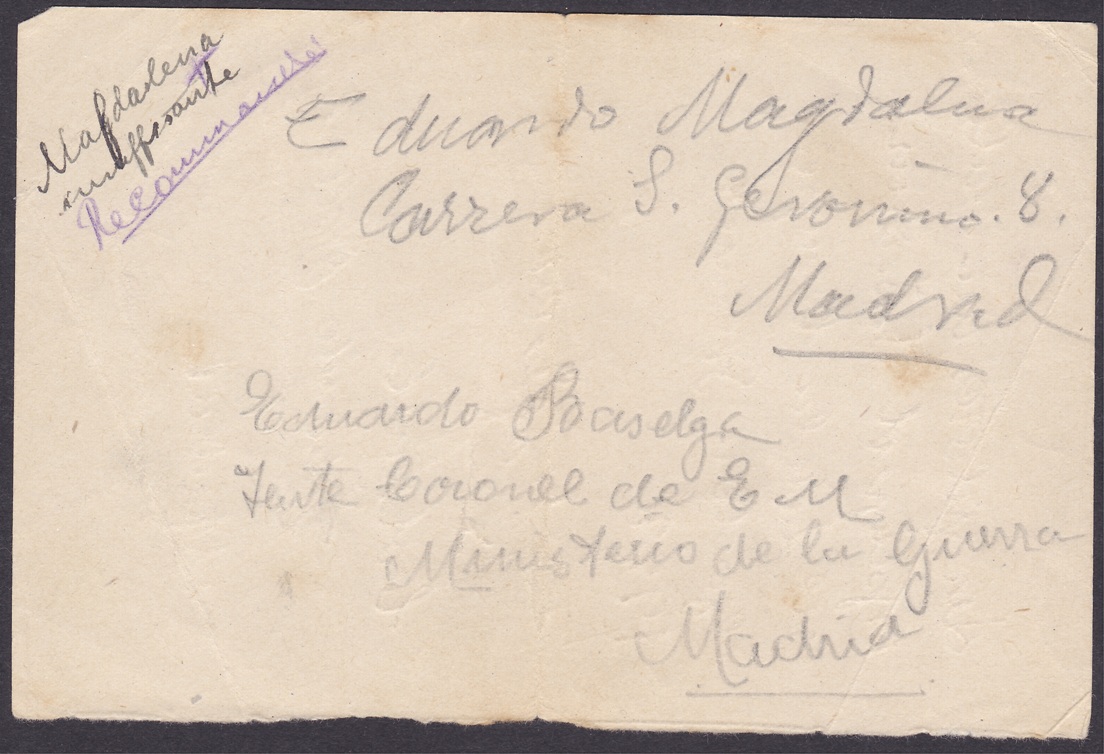 Magdalena
insuffisante
Recommandée
Eduardo Magdalena
Carrera S. Geronimo. 8.
Madrid
Eduardo Baselga
Tente Coronel de E M
Ministerio de la Guerra
Madrid